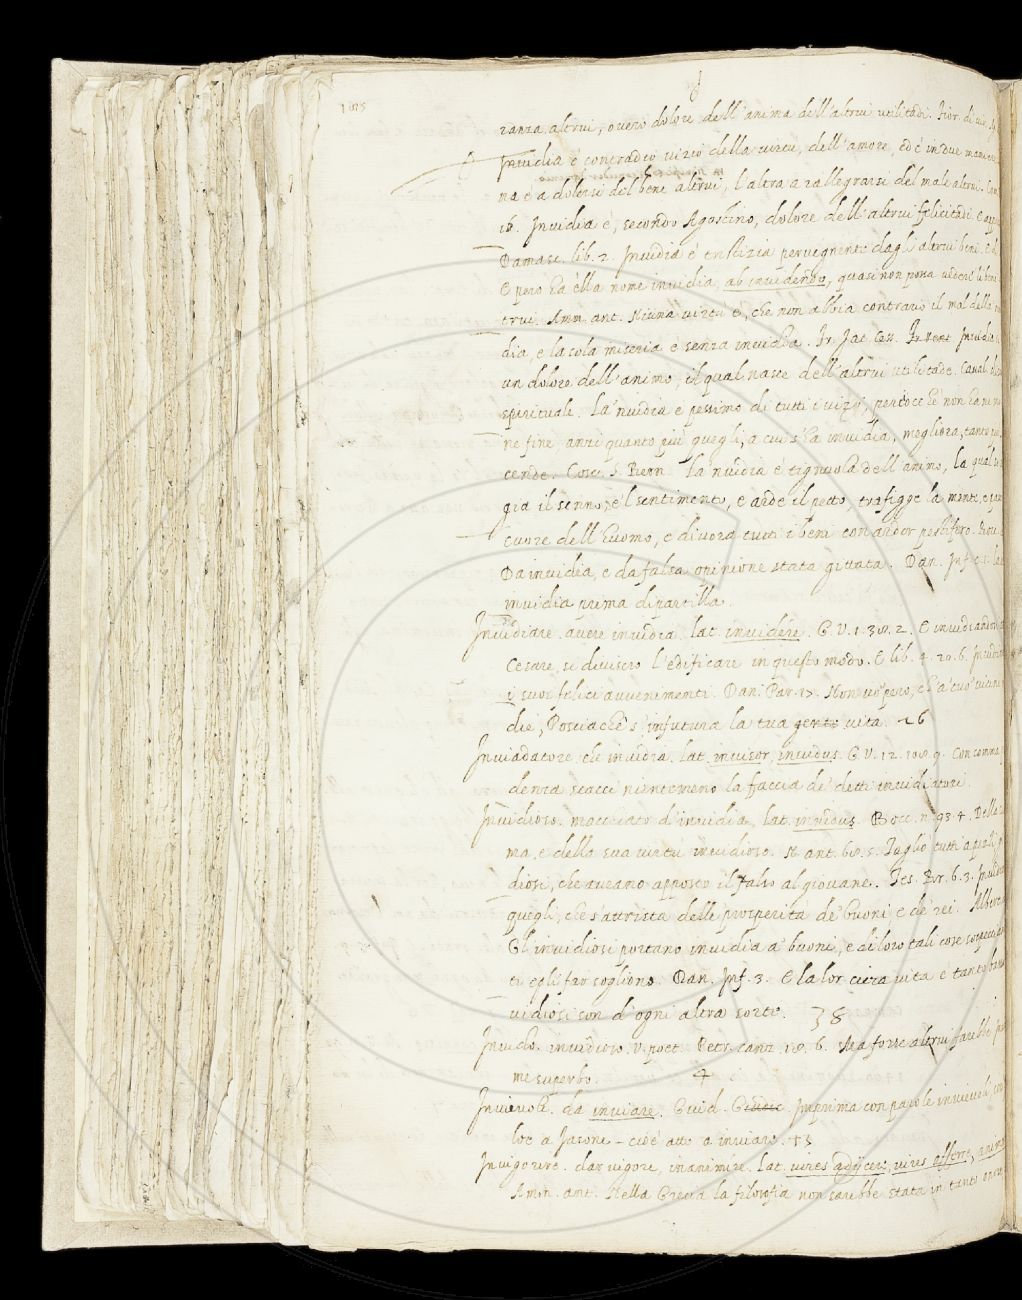 ranza altrui, overo dolore dell'anima dell'altrui utilitadi. Fior. di vir.
Invidia è contradio vizio della virtù dell'amore, ed è in due maniere
na è a dolersi del bene altrui, l'altra a rallegrarsi del male altrui.
ib. Invidia è, secondo Agostino, dolore dell'altrui felicitadi. E
Damasc. lib. 2. Invidia è tristizia pervegnente dagl'altrui beni.
E però ha ella nome invidia, ab invidendo, quasi non possa vedere il ben
trui. Amm. ant. Niuna virtù è, che non abbia contrario il mal della
dia, e la sola miseria è senza invidia. Fr. Jac. Cess. Invidia
un dolore dell'animo, il qual nasce dell'altrui utilitade. Caval.
spirituali. La 'nvidia è pessimo di tutti i vizj, perocchè non ha
ne fine, anzi quanto più quegli, a cui s'ha invidia, megliora, tanto più
cende. Cosc. S. Bern. La 'nvidia è tignuola dell'animo, la qual
gia il senno, e 'l sentimento, e arde il petto, trafigge la mente, e
cuore dell'huomo, e divora tutti i beni con ardor pestifero.
Da invidia, e da falsa opinione stata gittata. Dan. Inf. c. 1. La
invidia prima dipartilla.
Invidiare. avere invidia. lat. invidére. G. V. 1. 38. 2. E invidiando
Cesare, si divisero l'edificare in questo modo. E lib. 4. 20. 6.
i suoi felici avvenimenti. Dan. Par. 17. Non vo' però, ch'a tuo' vicini
die, Posciachè s'infutura la tua gente vita. 26
Invidiatore. che invidia. lat. invisor, invidus. G. V. 12. 108. 9. Con
denza scacci nientemeno la faccia de' detti invidiatori.
Invidioso. macchiato d'invidia. lat. invidus. Bocc. n. 93. 4. Della
ma, e della sua virtù invidioso. N. ant. 68. 5. Tagliò tutti a pezzi
diosi, che aveano apposto il falso al giovane. Tes. Br. 6. 3. Invidioso
quegli, che s'attrista delle prosperità de' buoni, e de' rei. Albert.
Gl'invidiosi portano invidia a' buoni, e di loro tali cose
ti egli far sogliono. Dan. Inf. 3. E la lor cieca vita è tanto bassa
vidiosi son d'ogni altra sorte. 38
Invido. invidioso. v. poet. Petr. canz. 18. 6. Ma forse altrui farebbe
me superbo. 4
Invievole. da inviare. Guid. Giudic. Imprima con parole invievoli,
loe a Jasone – cioè atte a inviare. +3
Invigorire. dar vigore, inanimire. lat. vires adijcere, vires afferre,
Amm. ant. Nella Grecia la filosofia non sarebbe stata in tanto onore